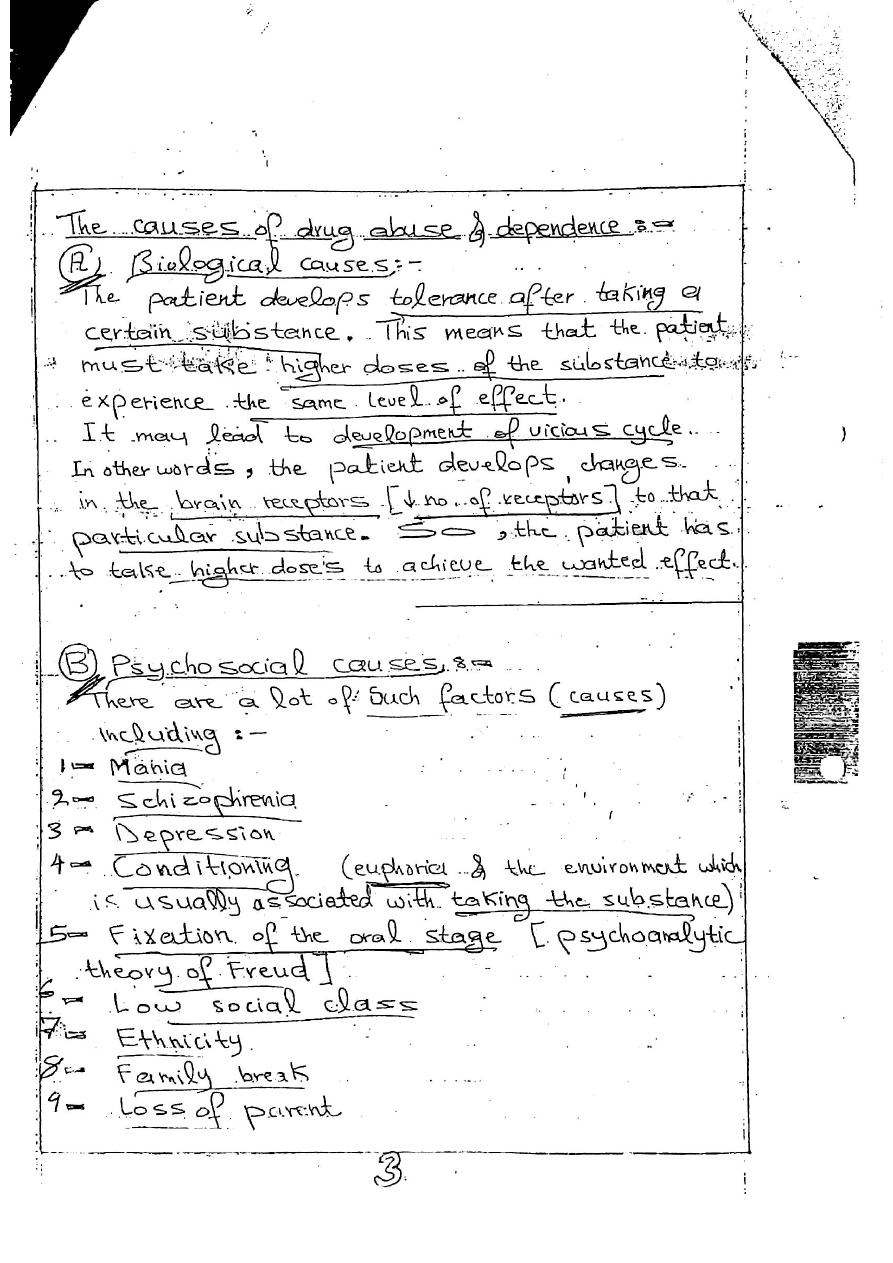 The causes of drug abuse & dependence :-
(A) Biological causes :-
The patient develops tolerance after taking a
certain substance. This means that the patient
must take higher doses of the substance to
experience the same level of effect.
It may lead to development of vicious cycle.
In other words, the patient develops changes
in the brain receptors [↓ no. of receptors] to that
particular substance. So, the patient has
to take higher dose's to achieve the wanted effect.
(B) Psychosocial causes :-
There are a lot of such factors (causes)
including :-
1- Mania
2- Schizophrenia
3- Depression
4- Conditioning (euphoria & the environment which
is usually associated with taking the substance)
5- Fixation of the oral stage [psychoanalytic
theory of Freud]
6- Low social class
7- Ethnicity
8- Family break
9- Loss of parent
3